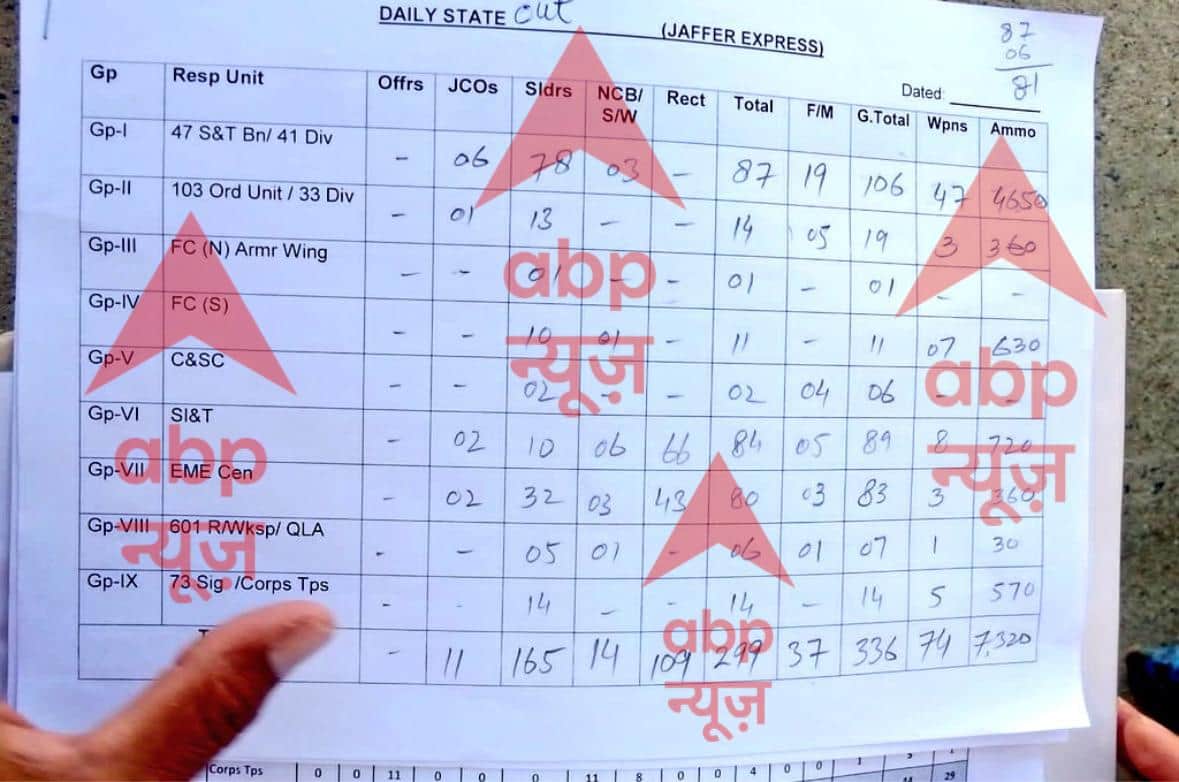 DAILY STATE Out (JAFFER EXPRESS)
87
06
81
Dated:
Gp Resp Unit Offrs JCOs Sldrs NCB/ S/W Rect Total F/M G.Total Wpns Ammo
Gp-I 47 S&T Bn/ 41 Div - 06 78 03 - 87 19 106 47 4650
Gp-II 103 Ord Unit / 33 Div - 01 13 - - 14 05 19 3 360
Gp-III FC (N) Armr Wing - - 01 - - 01 - 01 - -
Gp-IV FC (S) - - 10 01 - 11 - 11 07 630
Gp-V C&SC - - 02 - - 02 04 06 - -
Gp-VI SI&T - 02 10 06 66 84 05 89 8 720
Gp-VII EME Cen - 02 32 03 43 80 03 83 3 360
Gp-VIII 601 R/Wksp/ QLA - - 05 01 - 06 01 07 1 30
Gp-IX 73 Sig /Corps Tps - - 14 - - 14 - 14 5 570
- 11 165 14 109 299 37 336 74 7,320
Corps Tps 0 0 11 0 0 0 11 8 0 0 4 0 0 1
29
abp
न्यूज़
abp
न्यूज़
abp
न्यूज़
abp
न्यूज़